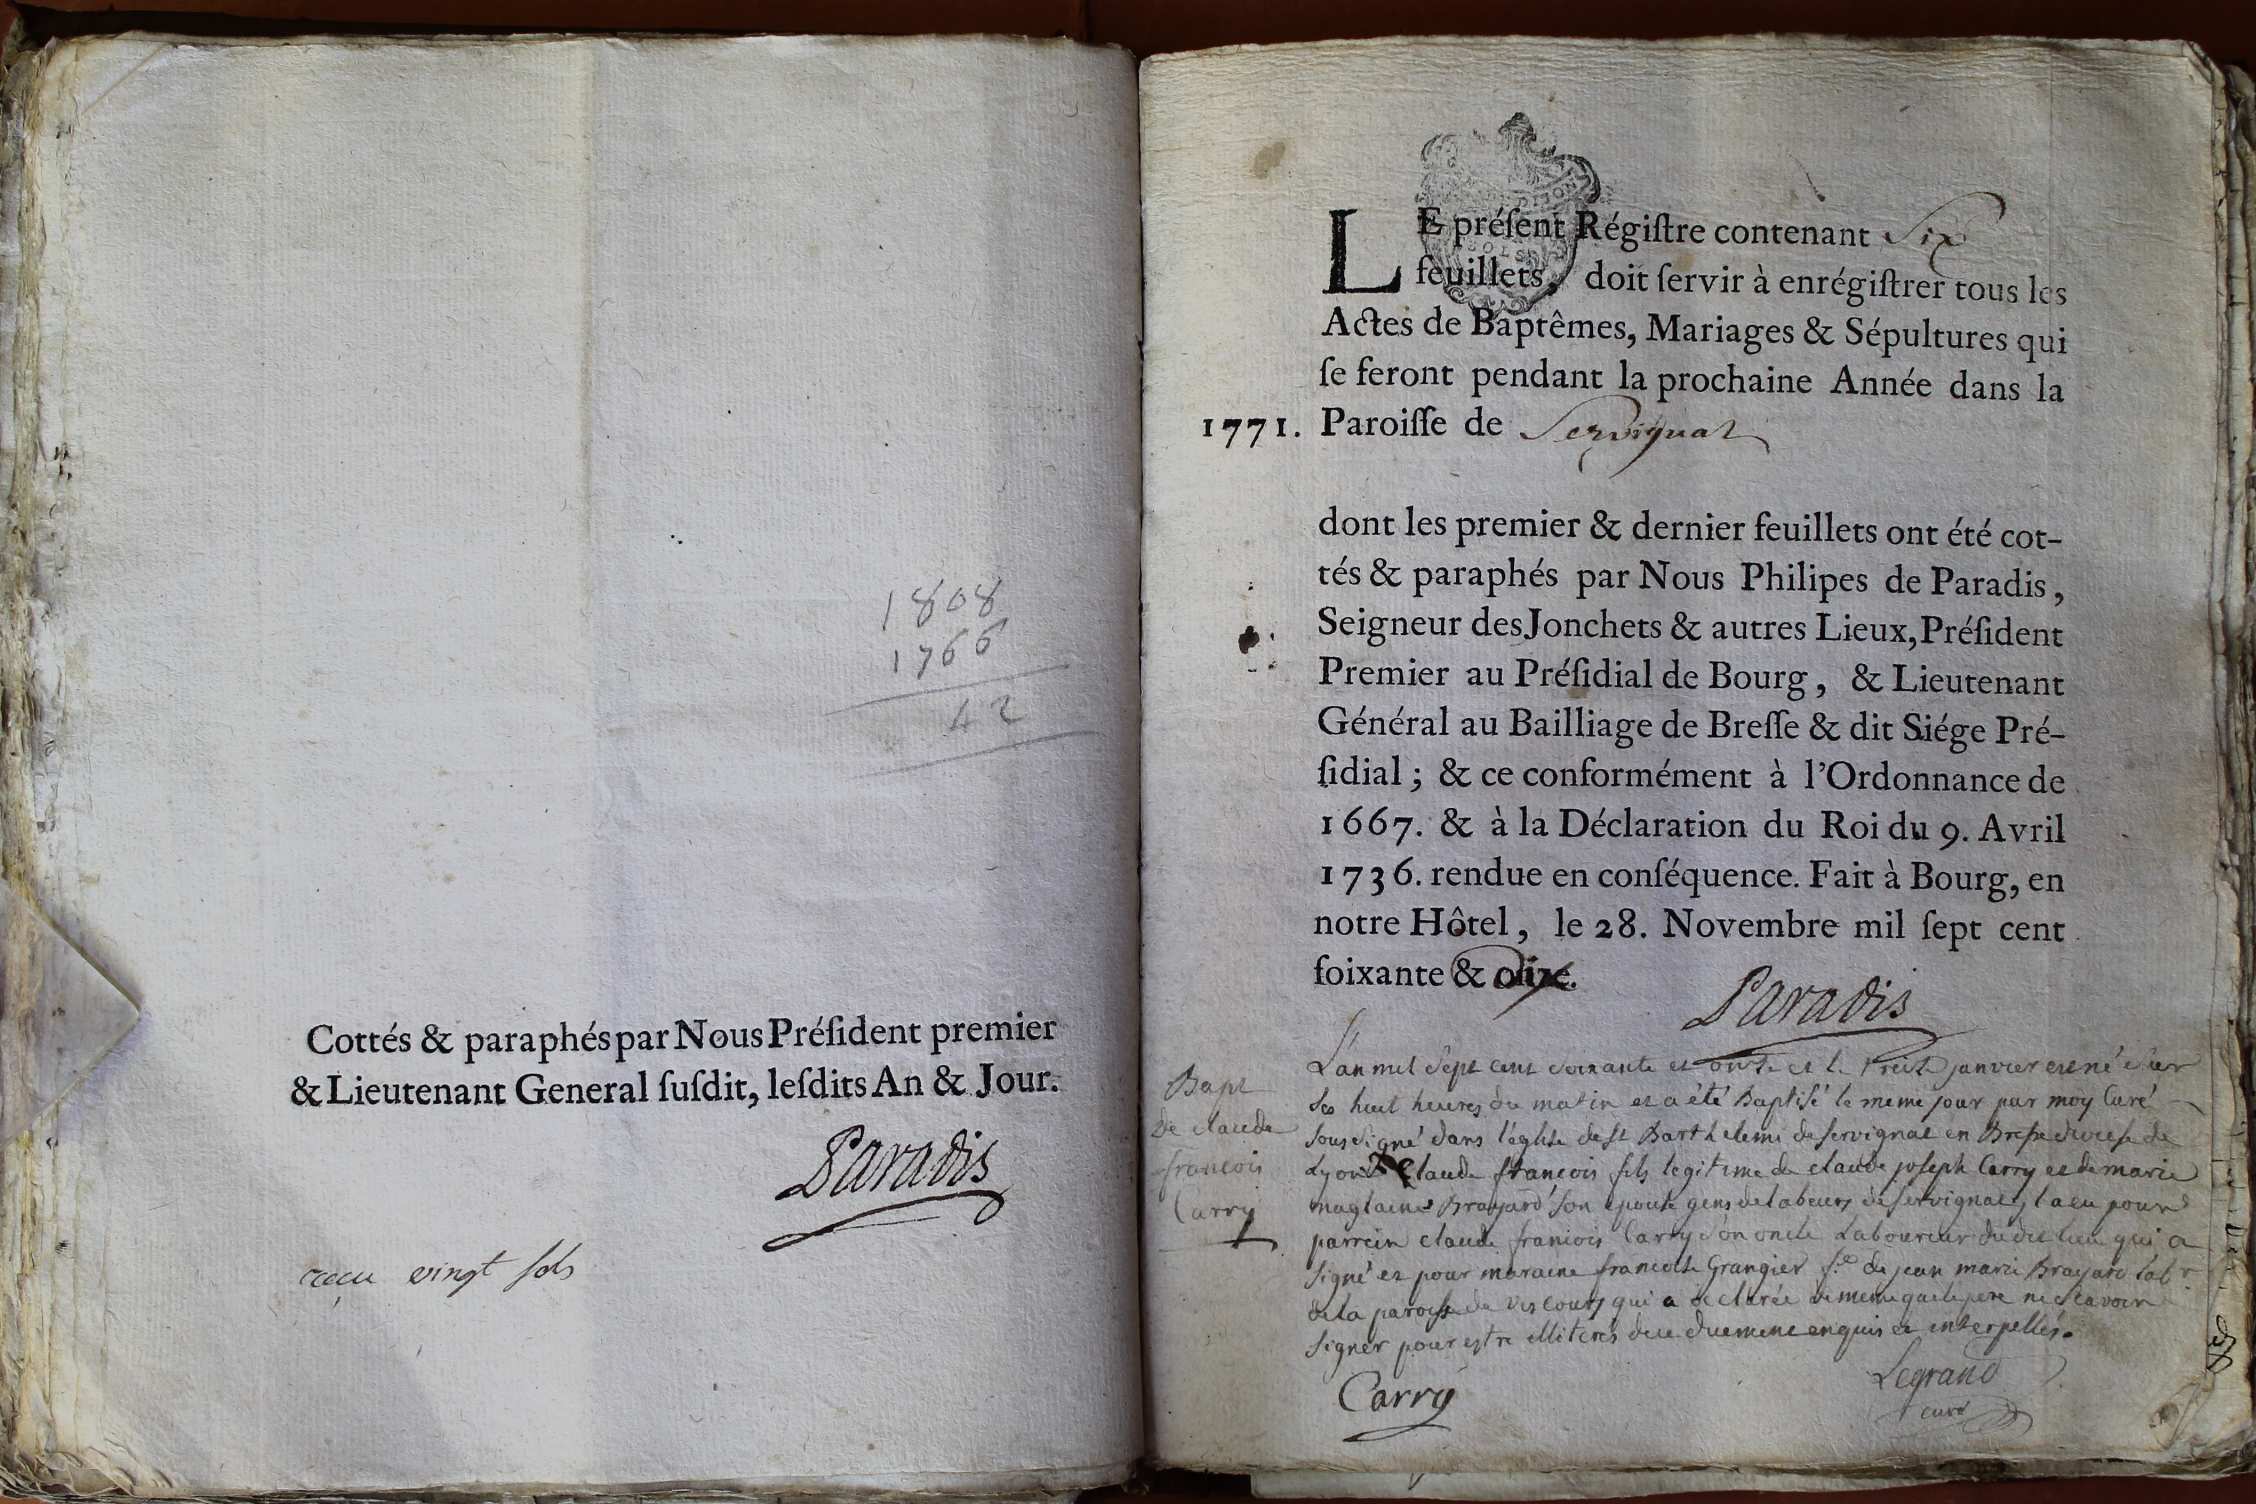 1808
1766
42
Cottés & paraphés par Nous Préſident premier
& Lieutenant General ſuſdit, leſdits An & Jour.
Paradis
reçu vingt sols
LE préſent Régiſtre contenant Six
feuillets, doit ſervir à enrégiſtrer tous les
Actes de Baptêmes, Mariages & Sépultures qui
ſe feront pendant la prochaine Année dans la
1771. Paroiſſe de Servignat
dont les premier & dernier feuillets ont été cot-
tés & paraphés par Nous Philipes de Paradis,
Seigneur des Jonchets & autres Lieux, Préſident
Premier au Préſidial de Bourg, & Lieutenant
Général au Bailliage de Breſſe & dit Siége Pré-
ſidial ; & ce conformément à l'Ordonnance de
1667. & à la Déclaration du Roi du 9. Avril
1736. rendue en conſéquence. Fait à Bourg, en
notre Hôtel, le 28. Novembre mil ſept cent
ſoixante & dix.
Paradis
Bapt
de claude
francois
Carry
L'an mil sept cent soixante et onze et le treize janvier est né
huit heures du matin et a été Baptisé le meme jour par moy Curé
soussigné dans l'eglise de st Barthelemi de servignat en Bresse diocese de
Lyon Claude francois fils legitime de claude joseph Carry et de marie
maglaine Brayard son epouse gens de labeurs de servignat, la eu pour
parrein claude francois Carry son oncle Laboureur du dit lieu qui a
signé et pour maraine francoise Grangier f.e de jean marie Brayard labr
de la paroisse de vescours qui a declarée de meme que le pere ne scavoir
signer pour estre illiterés de ce duement enquis et interpellés.
Carry
Legrand
curé